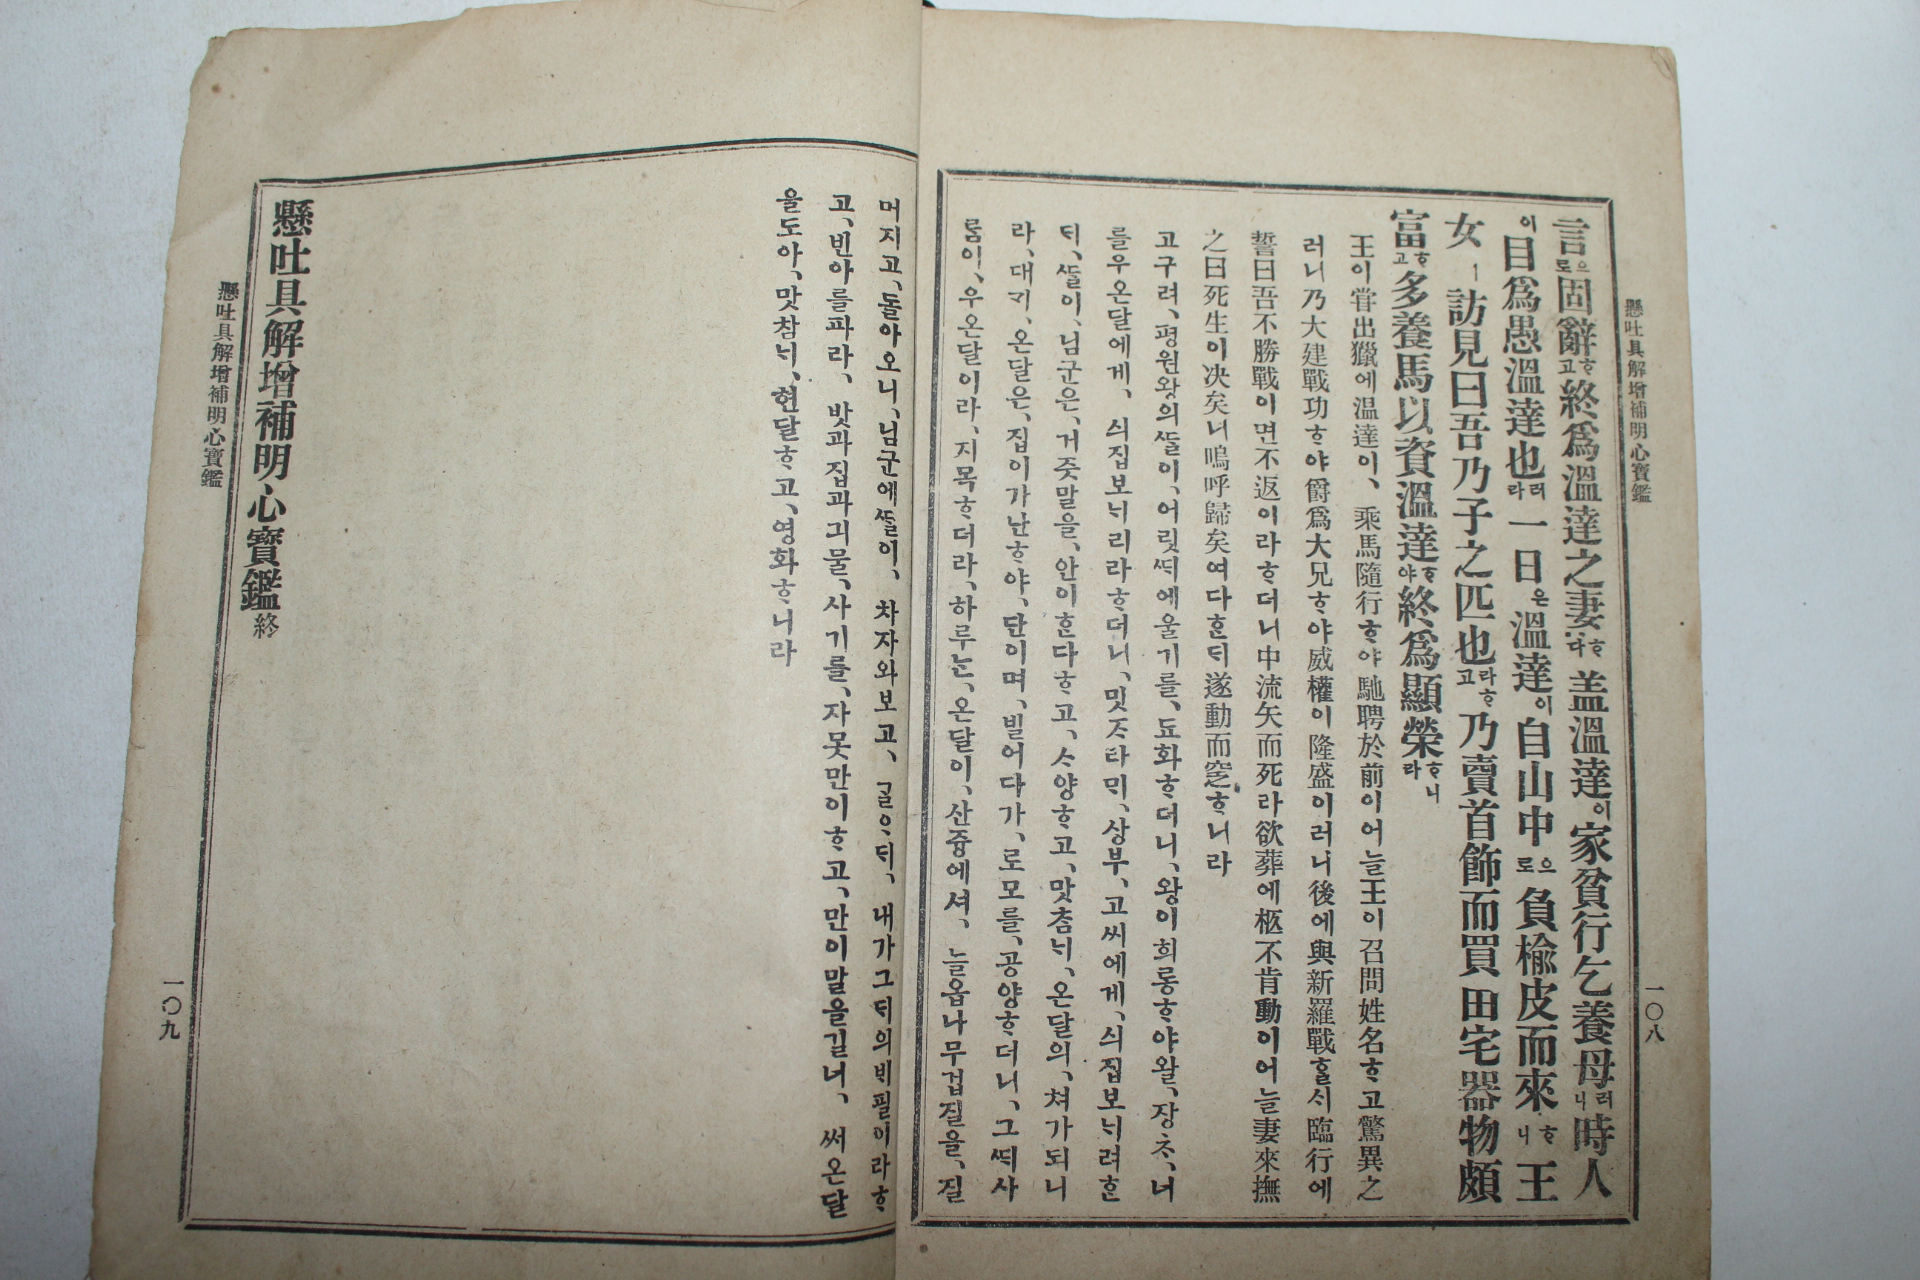 懸吐具解增補明心寶鑑
一〇八
言으로固辭ᄒᆞ고終爲溫達之妻ᄒᆞ다盖溫達이家貧行乞養母러니時人
이目爲愚溫達也러라一日은溫達이自山中으로負楡皮而來ᄒᆞ니王
女ㅣ訪見曰吾乃子之匹也라ᄒᆞ고乃賣首飾而買田宅器物頗
富ᄒᆞ고多養馬以資溫達ᄒᆞ야終爲顯榮ᄒᆞ니라
王이甞出獵에溫達이、乘馬隨行ᄒᆞ야馳聘於前이어늘王이召問姓名ᄒᆞ고驚異之
러니乃大建戰功ᄒᆞ야爵爲大兄ᄒᆞ야威權이隆盛이러니後에與新羅戰ᄒᆞᆯᄉᆡ臨行에
誓曰吾不勝戰이면不返이라ᄒᆞ더니中流矢而死라欲葬에柩不肯動이어늘妻來撫
之曰死生이决矣니嗚呼歸矣여다ᄒᆞᆫᄃᆡ遂動而窆ᄒᆞ니라
고구려、평원왕의ᄯᆞᆯ이、어릿ᄯᆡ에울기를、됴화ᄒᆞ더니、왕이희롱ᄒᆞ야왈、장ᄎᆞ、너
를우온달에게、싀집보ᄂᆡ리라ᄒᆞ더니、밋ᄌᆞ라ᄆᆡ、상부、고씨에게、싀집보ᄂᆡ려ᄒᆞᆫ
ᄃᆡ、ᄯᆞᆯ이、님군은、거줏말을、안이ᄒᆞᆫ다ᄒᆞ고、ᄉᆞ양ᄒᆞ고、맛ᄎᆞᆷᄂᆡ、온달의、쳐가되니
라、대긔、온달은、집이가난ᄒᆞ야、단이며、빌어다가、로모를、공양ᄒᆞ더니、그ᄯᆡ사
ᄅᆞᆷ이、우온달이라、지목ᄒᆞ더라、하루ᄂᆞᆫ、온달이、산즁에셔、늘읍나무겁질을、질
머지고、돌아오니、님군에ᄯᆞᆯ이、차자와보고、ᄀᆞᆯᄋᆞᄃᆡ、내가그ᄃᆡ의ᄇᆡ필이라ᄒᆞ
고、빈아를파라、밧과집과긔물、사기를、자못만이ᄒᆞ고、만이말을길너、써온달
을도아、맛참ᄂᆡ、현달ᄒᆞ고、영화ᄒᆞ니라
懸吐具解增補明心寶鑑終
懸吐具解增補明心寶鑑
一〇九